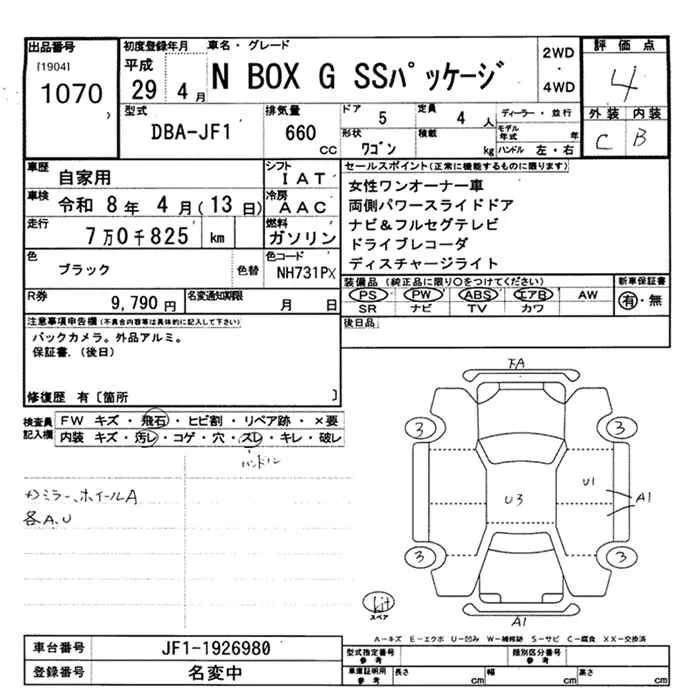 出品番号
[1904]
1070
初度登録年月
平成
29 4月
車名・グレード
N BOX G SSパッケージ
2WD
・
4WD
評価点
4
外装 内装
C B
型式
DBA-JF1
排気量
660
cc
ドア
5
定員
4 人
形状
ワゴン
積載
kg
ディーラー・並行
モデル年式 年
ハンドル 左・右
車歴
自家用
シフト
IAT
車検
令和 8年 4月(13日)
冷房
AAC
走行
7万0千825 km
燃料
ガソリン
色
ブラック
色替
色コード
NH731PX
R券
9,790円
名変通知期限
月 日
セールスポイント(正常に機能するものに限ります)
女性ワンオーナー車
両側パワースライドドア
ナビ&フルセグテレビ
ドライブレコーダ
ディスチャージライト
装備品(純正品に限り〇をつけてください)
PS PW ABS エアB AW
SR ナビ TV カワ
新車保証書
有・無
後日品
注意事項申告欄(不具合内容等は具体的に記入して下さい)
バックカメラ。外品アルミ。
保証書.(後日)
修復歴 有〔箇所 〕
検査員記入欄
FW キズ・飛石・ヒビ割・リペア跡・×要
内装 キズ・汚レ・コゲ・穴・スレ・キレ・破レ
ハンドル
ミラー、ホイールA
各A、U
FA
3 3
U1
A1
U3
3 3
スペア
A1
A−キズ E−エクボ U−凹み W−補修跡 S−サビ C−腐食 XX−交換済
車台番号
JF1-1926980
登録番号
名変中
型式指定番号
参考
類別区分番号
参考
車庫証明用
参考
長さ cm
幅 cm
高さ cm